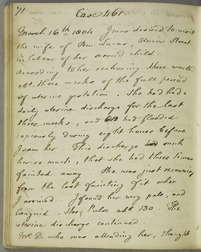 71
Case 461.
March 16th 1804 I was desired to visit
the wife of Ben. Lucas, Street
in labour of her second child.
According to her reckoning there wants
yet three weeks of the full period
of uterine gestation. She had had a
daily uterine discharge for the last
three weeks, and had flooded
copiously during eight hours before
I saw her. This discharge
her so much, that she had three times
fainted away. She was just recovering
from the last fainting fit when
I arrived. I found her very pale, and
languid. Her Pulse abt. 130. The
uterine discharge continued.
Mr. D. who was attending her, thought